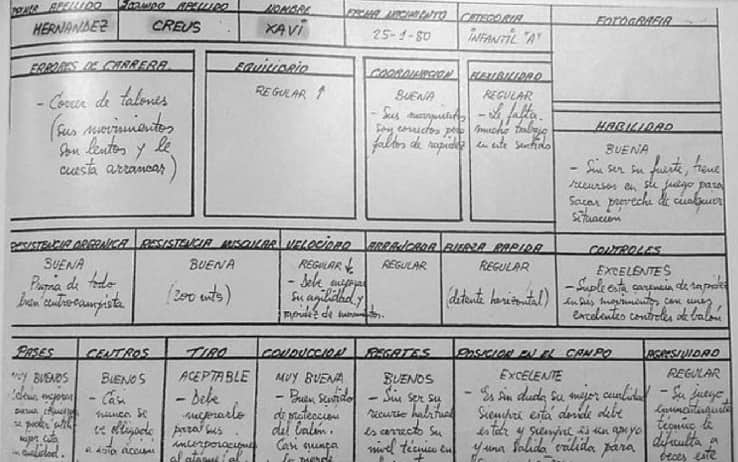 PRIMER APELLIDO SEGUNDO APELLIDO NOMBRE FECHA NACIMIENTO CATEGORIA FOTOGRAFIA
HERNANDEZ CREUS XAVI 25-1-80 INFANTIL "A"
ERRORES DE CARRERA
- Correr de talones
(sus movimientos
son lentos y le
cuesta arrancar)
EQUILIBRIO
REGULAR ↑
COORDINACION
BUENA
- Sus movimientos
son correctos pero
faltos de rapidez
FLEXIBILIDAD
REGULAR
- Le falta
mucho trabajo
en este sentido
HABILIDAD
BUENA
- Sin ser su fuerte, tiene
recursos en su juego para
sacar provecho de cualquier
situación
RESISTENCIA ORGANICA
BUENA
Propia de todo
buen centrocampista
RESISTENCIA MUSCULAR
BUENA
(200 mts)
VELOCIDAD
REGULAR ↓
- Debe mejorar
su agilidad y
rapidez de movimientos.
ARRANCADA
REGULAR
FUERZA RAPIDA
REGULAR
(detente horizontal)
CONTROLES
EXCELENTES
- Suple esta carencia de rapidez
en sus movimientos con unos
excelentes controles de balón
PASES
MUY BUENOS
CENTROS
BUENOS
- Casi
nunca se
ve obligado
a esta acción
TIRO
ACEPTABLE
- Debe
mejorarlo
para sus
incorporaciones
al ataque
CONDUCCION
MUY BUENA
- Buen sentido
de protección
del balón.
Casi nunca
lo pierde
REGATES
BUENOS
- Sin ser su
recurso habitual
es correcto su
nivel técnico en
POSICION EN EL CAMPO
EXCELENTE
- Es sin duda su mejor cualidad
siempre está donde debe
estar y siempre es un apoyo
y una salida válida para
AGRESIVIDAD
REGULAR
- Su juego
eminentemente
técnico le
dificulta a
veces este